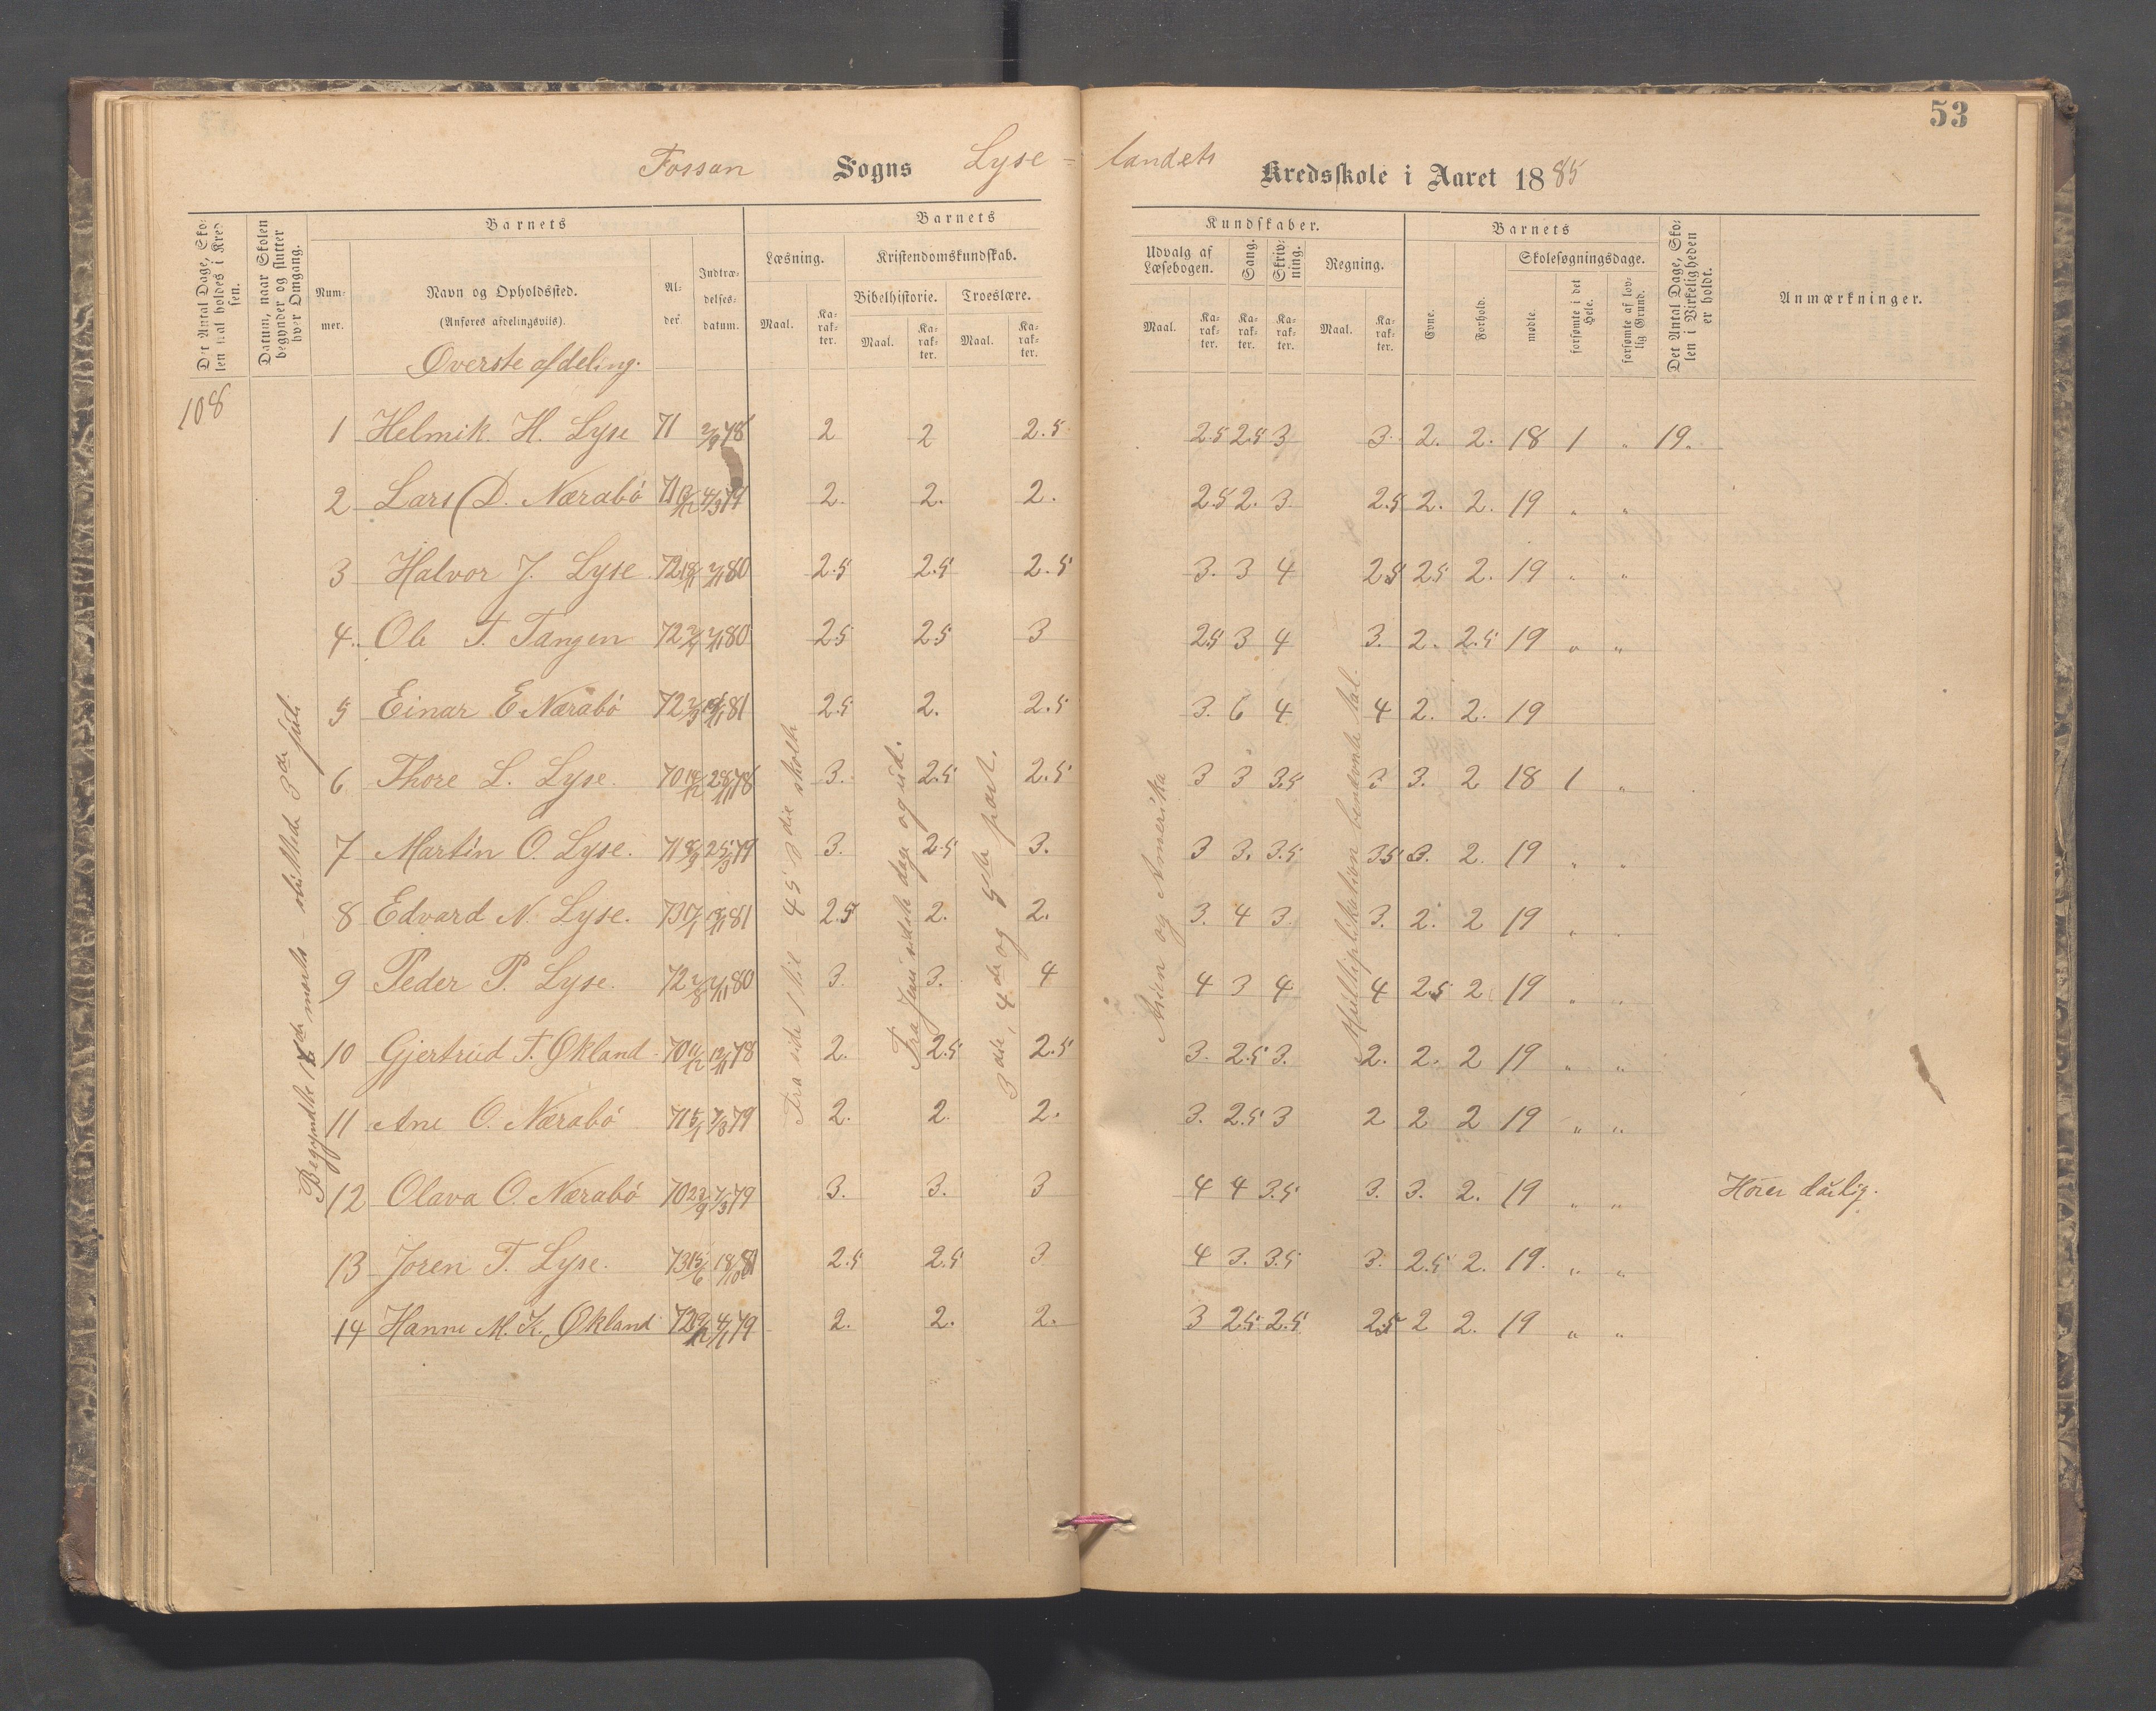 53
Fossan Sogns Lyse = landets Kredsskole i Aaret 1885
Det Antal Dage, Skolen skal holdes i Kredsen.
Datum, naar Skolen begynder og slutter hver Omgang.
Barnets
Nummer.
Navn og Opholdssted.
(Anføres afdelingsviis).
Alder.
Indtrædelsesdatum.
Barnets
Kundskaber.
Læsning.
Kristendomskundskab.
Bibelhistorie.
Troeslære.
Maal.
Karakter.
Maal.
Karakter.
Maal.
Karakter.
Udvalg af Læsebogen.
Sang.
Skrivning.
Regning.
Maal.
Karakter.
Karakter.
Karakter.
Maal.
Karakter.
Barnets
Evne.
Forhold.
Skolesøgningsdage.
mødte.
forsømte i det Hele.
forsømte af lovlig Grund.
Det Antal Dage, Skolen i Virkeligheden er holdt.
Anmærkninger.
Øverste afdeling.
108
1 Helmik. H. Lyse 71 78 2 2 2.5 2.5 2.5 3 3. 2. 2. 18 1 " 19.
2 Lars D. Nærabö 71 4/3 79 2. 2. 2. 2.5 2. 3. 2.5 2. 2. 19 " "
3 Halvor J. Lyse 72 80 2.5 2.5 2.5 3. 3 4 2.5 2.5 2. 19 " "
4. Ole T. Tangen 72 80 2.5 2.5 3 2.5 3 4 3. 2. 2.5 19 " "
5 Einar E Nærabö 72 81 2.5 2. 2.5 3. 6 4 4 2. 2. 19
6 Thore L. Lyse. 70 28/11 78 3. 2.5 2.5 3 3 3.5 3 3. 2 18 1 "
7 Martin O. Lyse. 71 25/3 79 3. 2.5 3. 3 3. 3.5 3.5 3. 2. 19 " "
8 Edvard N. Lyse. 73 81 2.5 2. 2. 3. 4 3. 3. 2. 2 19 " "
9 Peder P. Lyse. 72 80 3. 3. 4 4 3 4 4 2.5 2 19 " "
10 Gjertrud T. Økland. 70 12/11 78 2. 2.5 2.5 3. 2.5 3. 2. 2. 2 19 " "
11 Ane O. Nærabö 71 7/3 79 2. 2. 2. 3. 2.5 3 2 2 2 19 " "
12 Olava O. Nærabö 70 7/3 79 3. 3. 3 4 4 3.5 3. 3. 2. 19 " " Hörer dårlig.
13 Joren T. Lyse. 73 15/6 18/10 81 2.5 2.5 3 4 3. 3.5 3. 2.5 2. 19. " "
14 Hanne M. K. Økland 72 4/11 79 2. 2. 2. 3 2.5 2.5 2.5 2 2. 19 " "
Begyndte marts – sluttede 3de juli.
Fra side 1 til 45 3die skolet
Fra Jesu sidste dage og ud.
3die, 4de og 5te part.
Asien og Amerika
Multiplikation benævnte tal.